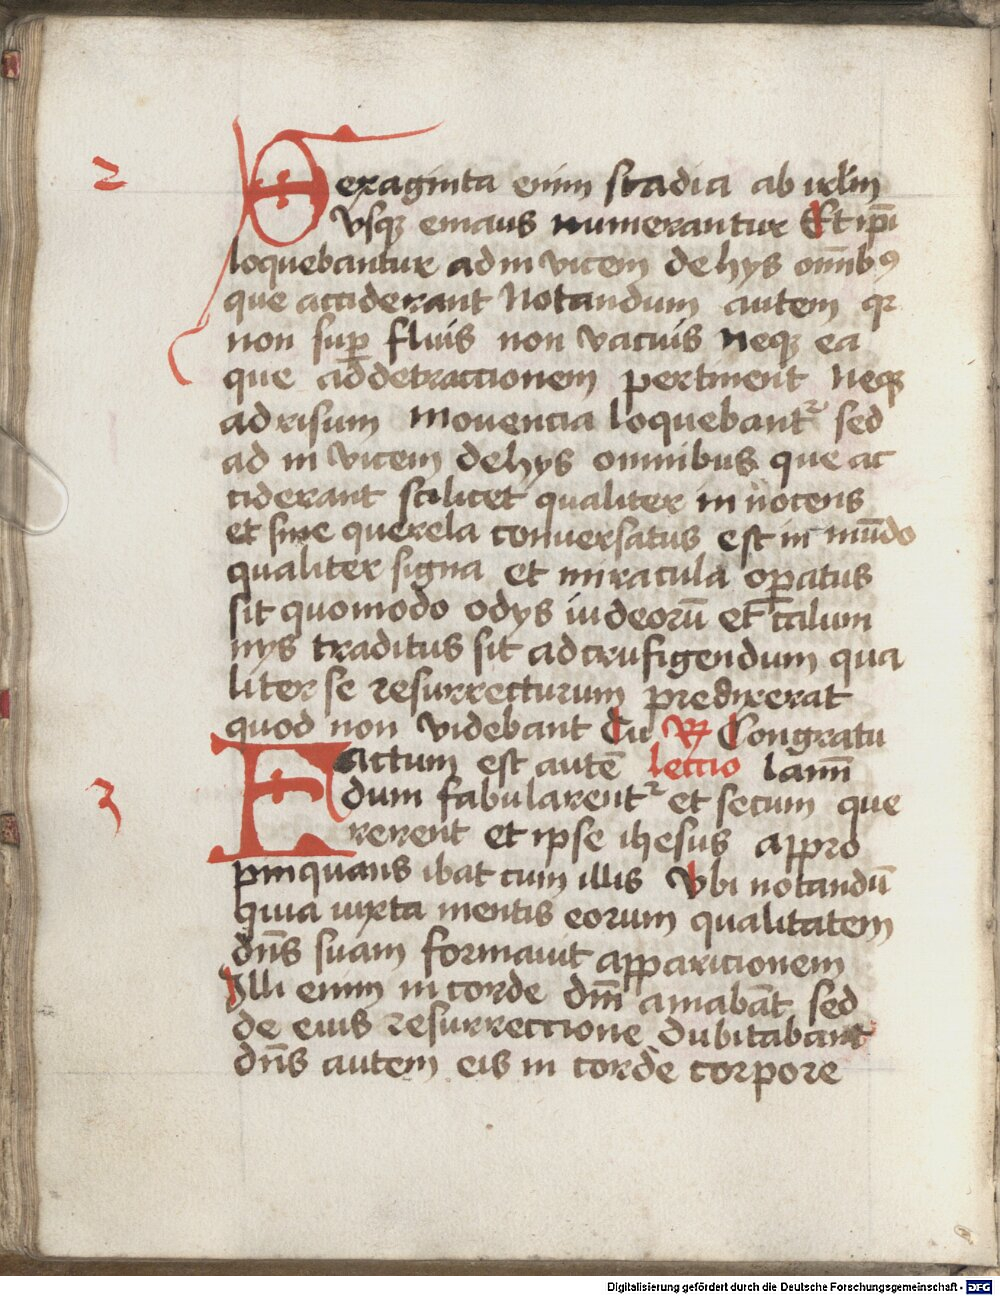 2
Sexaginta enim stadia ab irl̄m
vsqꝫ emaus numerantur Et ip̄i
loquebantur ad in vicem de hys om̄ibꝰ
que acciderant Notandum autem qꝛ
non suꝑ fluis non vacuis neqꝫ ea
que ad detraccionem pertinent neqꝫ
ad risum mouencia loquebantᷣ sed
ad in vicem de hys omnibus que ac
ciderant scilicet qualiter in nocens
et sine querela conuersatus est in mūdo
qualiter signa et miracula oꝑatus
sit quomodo odys iudeorū et calum
nys traditus sit ad crufigendum qua
liter se resurrecturum predixerat
quod non videbant Tu ℟ Congratu
lectio lamī
3
Factum est autē
dum fabularentᷣ et secum que
rerent et ipse ihesus appro
pinquans ibat cum illis Vbi notandū
quia iuxta mentis eorum qualitatem
dn̄s suam formauit apparicionem
Illi enim in corde dn̄m amabāt sed
de eius resurreccione dubitabant
dn̄s autem eis in corde corpore
Digitalisierung gefördert durch die Deutsche Forschungsgemeinschaft - DFG